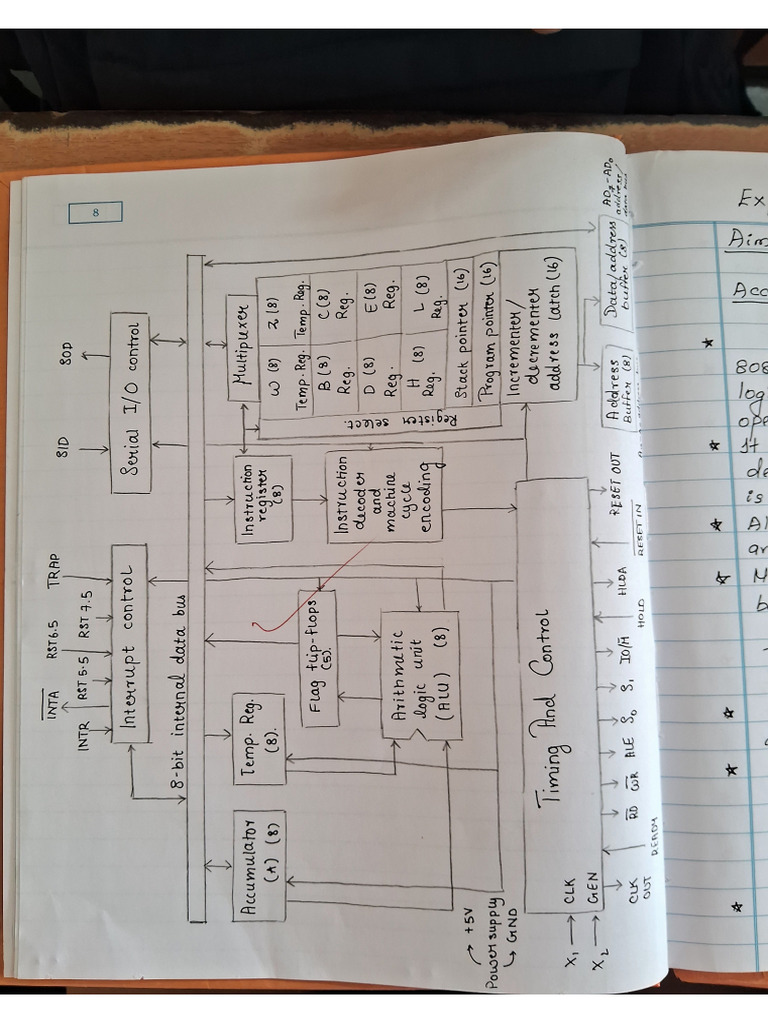 8
INTR
INTA
RST 5.5
RST6.5
RST 7.5
TRAP
SID
SOD
Interrupt control
Serial I/O control
8-bit internal data bus
Accumulator
(A) (8)
Temp. Reg.
(8).
Flag flip-flops
(5).
Arithmatic
logic unit
(ALU) (8)
Instruction
register
(8)
Instruction
decoder
and
machine
cycle
encoding
Multipuxer
W (8)
Temp. Reg.
Z (8)
Temp. Reg.
B (8)
Reg.
C (8)
Reg.
D (8)
Reg.
E (8)
Reg.
H (8)
Reg.
L (8)
Reg.
Stack pointer (16)
Program pointer (16)
Register
select.
Incrementer/
decrementer
address latch (16)
Power supply
+5V
GND
X1
CLK
X2
GEN
Timing And Control
CLK
OUT
READY
RD
WR
ALE
S0
S1
IO/M
HOLD
HLDA
RESET IN
RESET OUT
Address
Buffer (8)
Data/address
buffer (8)
AD7-AD0
address/
data bus
Ex
Aim
Acc
808
log
ope
It
de
is
Al
ar
M
b